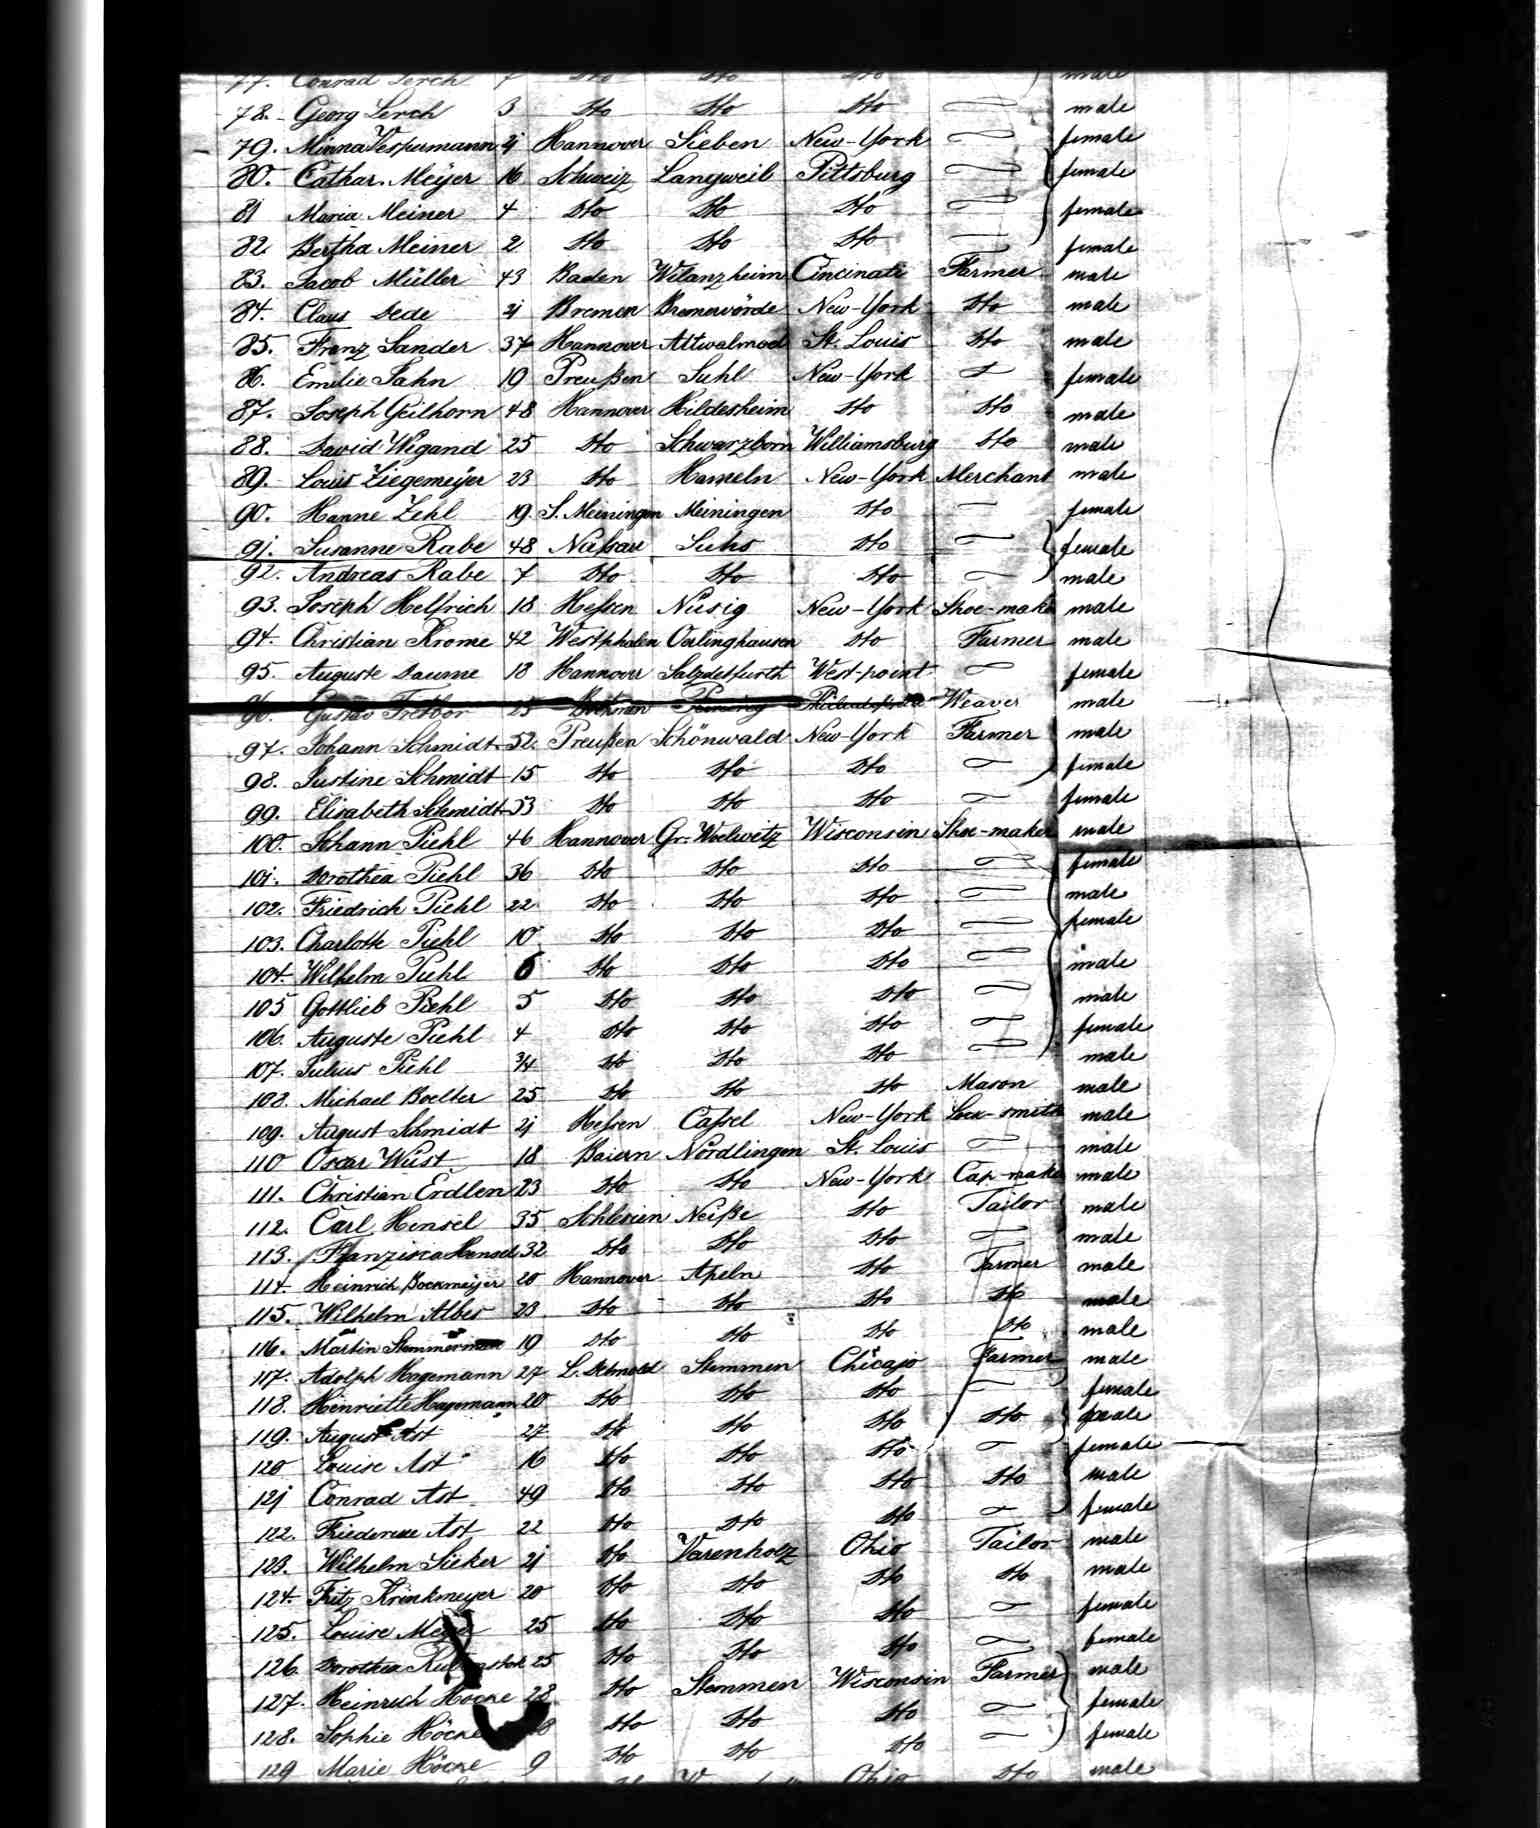 77. Conrad Lerch 7 Dto Dto Dto male
78. Georg Lerch 3 Dto Dto Dto male
79. Minna Vespermann 21 Hannover Sieben New-York female
80. Cathar. Meyer 16 Schweiz Langweil Pittsburg female
81 Maria Meiner 4 Dto Dto Dto female
82 Bertha Meiner 2 Dto Dto Dto female
83. Jacob Müller 43 Baden Cincinati Farmer male
84. Claus Dede 21 Bremen Bremervörde New-York Dto male
85. Franz Sander 37 Hannover Altwalmod St. Louis Dto male
86. Emilie Jahn 19 Preußen Suhl New-York female
87. Joseph Geilhorn 48 Hannover Hildesheim Dto Dto male
88. David Wigand 25 Dto Schwarzborn Williamsburg Dto male
89. Louis Ziegemeÿer 23 Dto Hameln New-York Merchant male
90. Hanne Zehl 19 S. Meiningen Meiningen Dto female
91. Susanne Rabe 48 Naßau Dto female
92. Andreas Rabe 7 Dto Dto Dto male
93. Joseph Helfrich 18 Heßen Nüsig New-York Shoe-make male
94. Christian Krome 42 Westphalen Oerlinghausen Dto Farmer male
95. Auguste Daume 18 Hannover Salzdetfurth West-point female
96. Gustav 25 Weaver male
97. Johann Schmidt 52. Preußen Schönwald New-York Farmer male
98. Justine Schmidt 15 Dto Dto Dto female
99. Elisabeth Schmidt 53 Dto Dto Dto female
100. Johann Piehl 46 Hannover Gr. Wisconsin Shoe-maker male
101. Dorothea Piehl 36 Dto Dto Dto female
102. Friedrich Piehl 22 Dto Dto Dto male
103. Charlotte Piehl 10 Dto Dto Dto female
104. Wilhelm Piehl 6 Dto Dto Dto male
105 Gottlieb Piehl 5 Dto Dto Dto male
106. Auguste Piehl 4 Dto Dto Dto female
107. Julius Piehl 3/4 Dto Dto Dto male
108. Michael Boelter 25 Dto Dto Dto Mason male
109. August Schmidt 21 Heßen Caßel New-York Lock-smith male
110 Oscar Wüst 18 Baiern Nördlingen St. Louis male
111. Christian Erdlen 23 Dto Dto New-York Cap-make male
112. Carl Hensel 35 Schlesien Neiße Dto Tailor male
113. Franzisca Hensel 32 Dto Dto Dto male
114. Heinrich Bockmeÿer 20 Hannover Apeln Dto Farmer male
115. Wilhelm Albes 23 Dto Dto Dto Dto male
116. Martin Stemmerman 19 Dto Dto Dto Dto male
117. Adolph Hagemann 27 L. Detmold Stemmen Chicajo Farmer male
118. Henriette Hagemann 20 Dto Dto Dto female
119. August Ast 27 Dto Dto Dto Dto male
120 Louise Ast 16 Dto Dto Dto female
121 Conrad Ast 49 Dto Dto Dto Dto male
122. Friedericke Ast 22 Dto Dto Dto female
123. Wilhelm Sieker 21 Dto Varenholz Ohio Tailor male
124. Fritz Krinkmeyer 20 Dto Dto Dto Dto male
125. Louise 25 Dto Dto Dto female
126 Dorothea 25 Dto Dto Dto female
127. Heinrich Höcke 28 Dto Stemmen Wisconsin Farmer male
128. Sophie Höcke Dto Dto Dto female
129 Marie Höcke 9 Dto Dto Dto female
Ohio Dto male